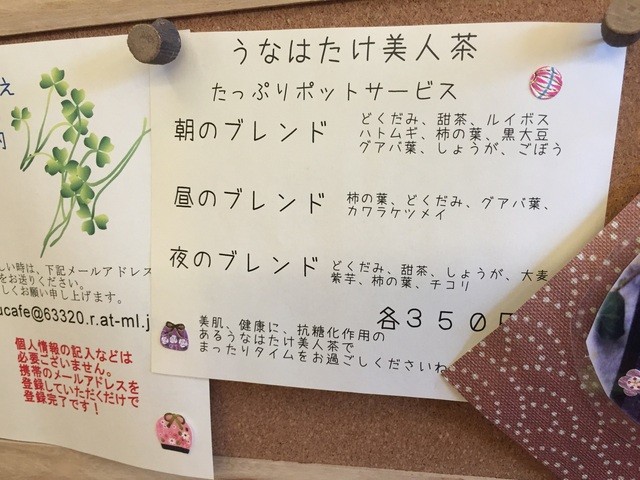 え
内
しい時は、下記メールアドレス
をお送りください。
しくお願い申し上げます。
ucafe@63320.r.at-ml.j
個人情報の記入などは
必要ございません。
携帯のメールアドレスを
登録していただくだけで
登録完了です！
うなはたけ美人茶
たっぷりポットサービス
朝のブレンド
どくだみ、甜茶、ルイボス
ハトムギ、柿の葉、黒大豆
グアバ葉、しょうが、ごぼう
昼のブレンド
柿の葉、どくだみ、グアバ葉、
カワラケツメイ
夜のブレンド
どくだみ、甜茶、しょうが、大麦
紫芋、柿の葉、チコリ
各３５０円
美肌、健康に、抗糖化作用の
あるうなはたけ美人茶で
まったりタイムをお過ごしくださいね